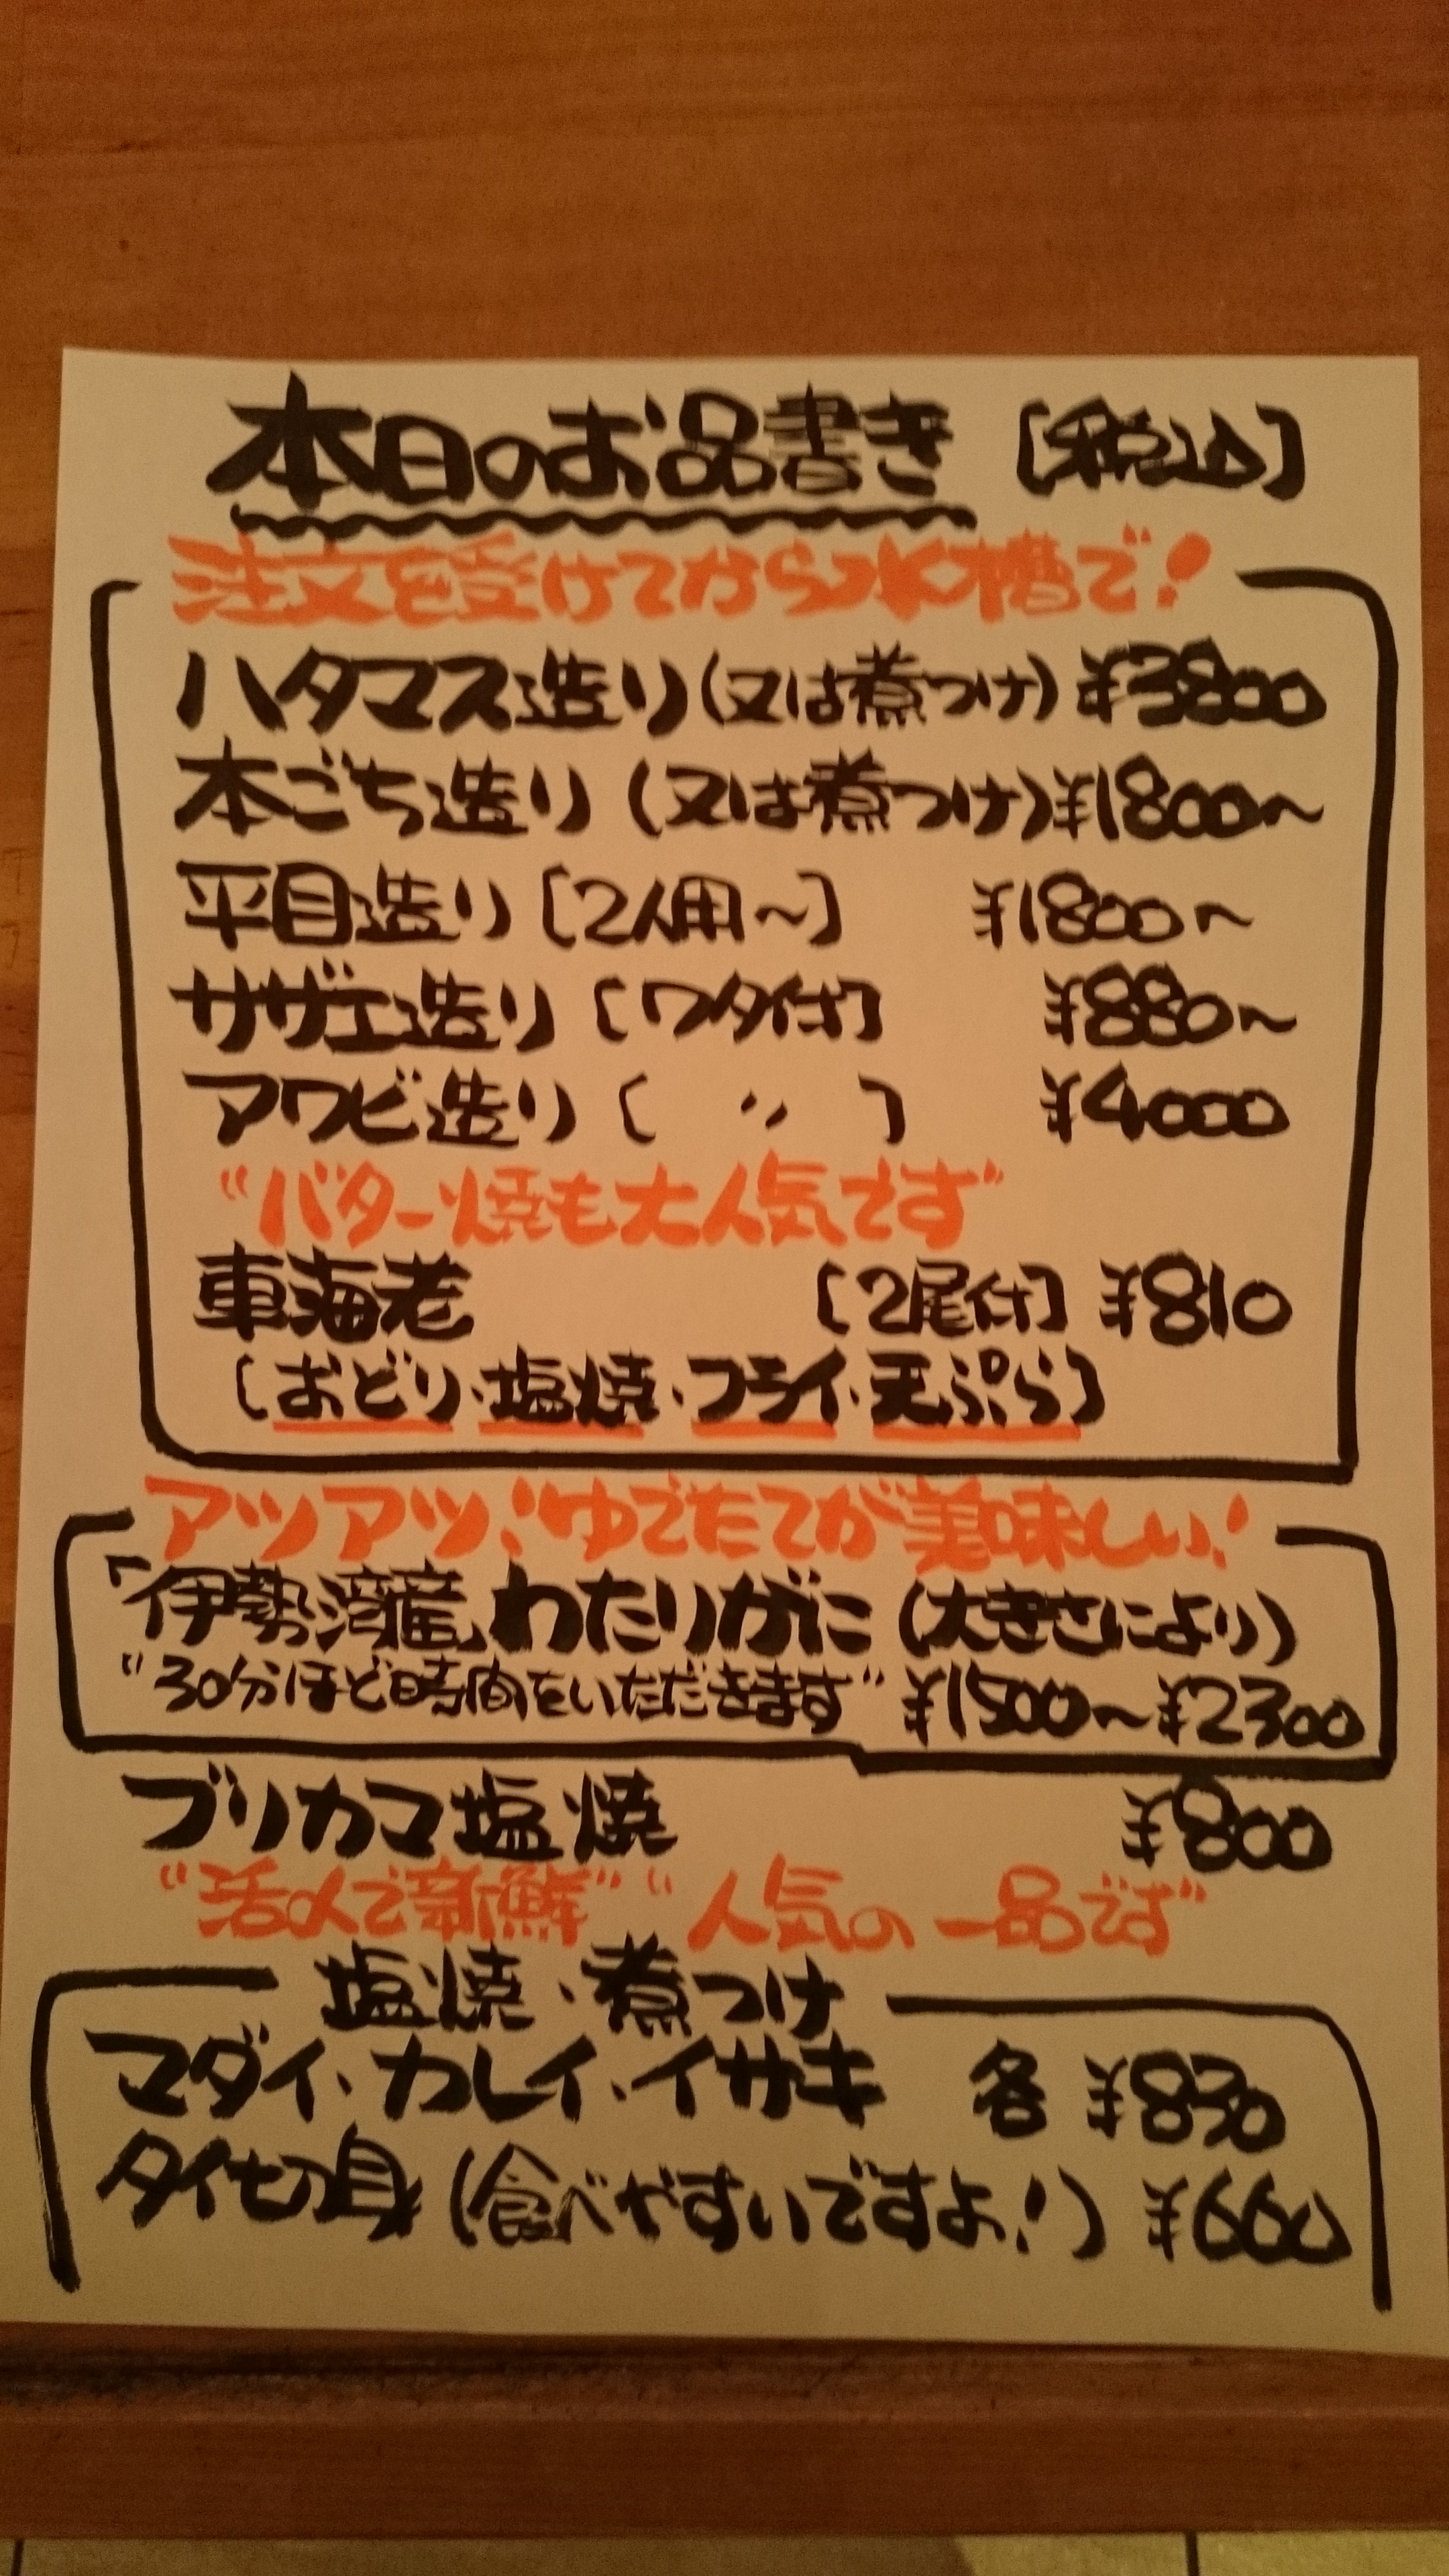 本日のお品書き [税込]
注文を受けてから水槽で!
ハタマス造り(又は煮つけ) ¥3800
本ごち造り(又は煮つけ) ¥1800〜
平目造り[2人用〜] ¥1800〜
サザエ造り[ワタ付] ¥880〜
アワビ造り[ 〃 ] ¥4000
"バター焼も大人気です"
車海老 [2尾付] ¥810
[おどり・塩焼・フライ・天ぷら]
アツアツ!ゆでたてが美味しい!
「伊勢湾産」わたりがに(大きさにより)
"30分ほど時間をいただきます" ¥1500〜¥2300
ブリカマ塩焼 ¥800
"活〆で新鮮" "人気の一品です"
塩焼・煮つけ
マダイ・カレイ・イサキ 各 ¥830
タイ切身(食べやすいですよ!) ¥660